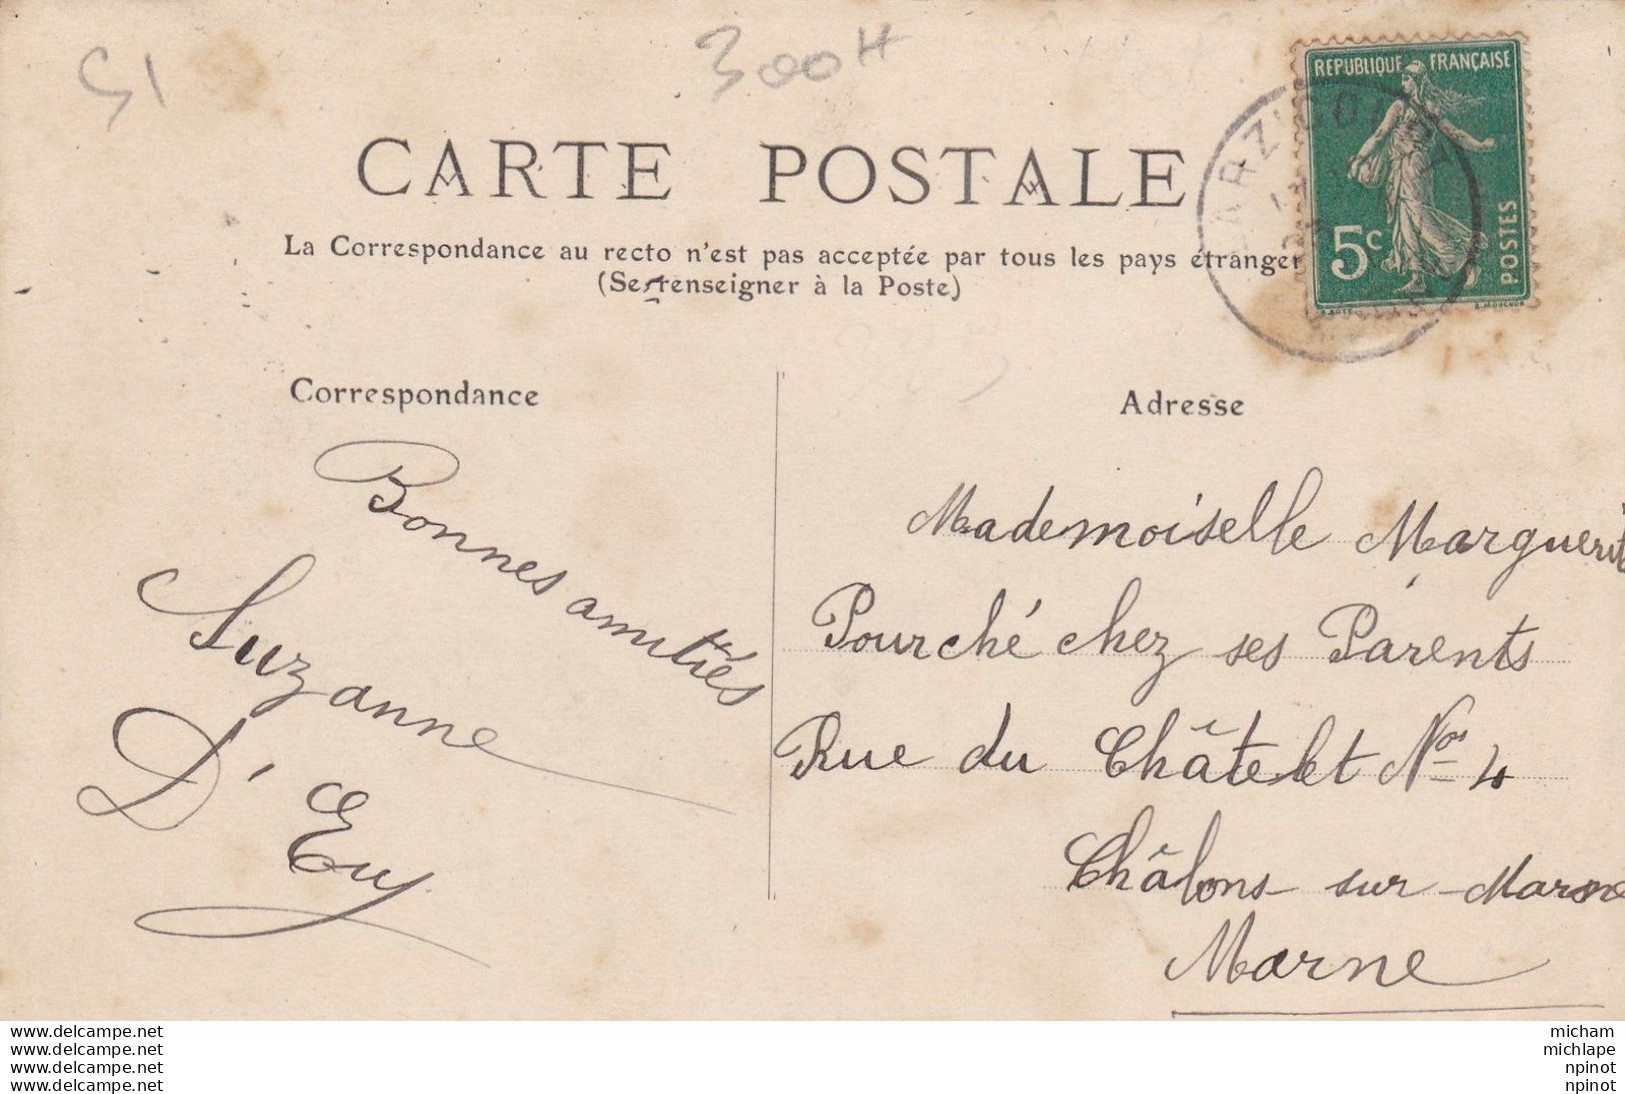 51
300H
REPUBLIQUE FRANÇAISE
5c
POSTES
CARTE POSTALE
La Correspondance au recto n'est pas acceptée par tous les pays étranger
(Se renseigner à la Poste)
Correspondance
Bonnes amitiés
Suzanne
D'Euy
Adresse
Mademoiselle Marguerit
Pourché chez ses Parents
Rue du Châtelet Nos 4
Châlons sur Marne
Marne
www.delcampe.net
www.delcampe.net
www.delcampe.net
www.delcampe.net
micham
michlape
npinot
npinot